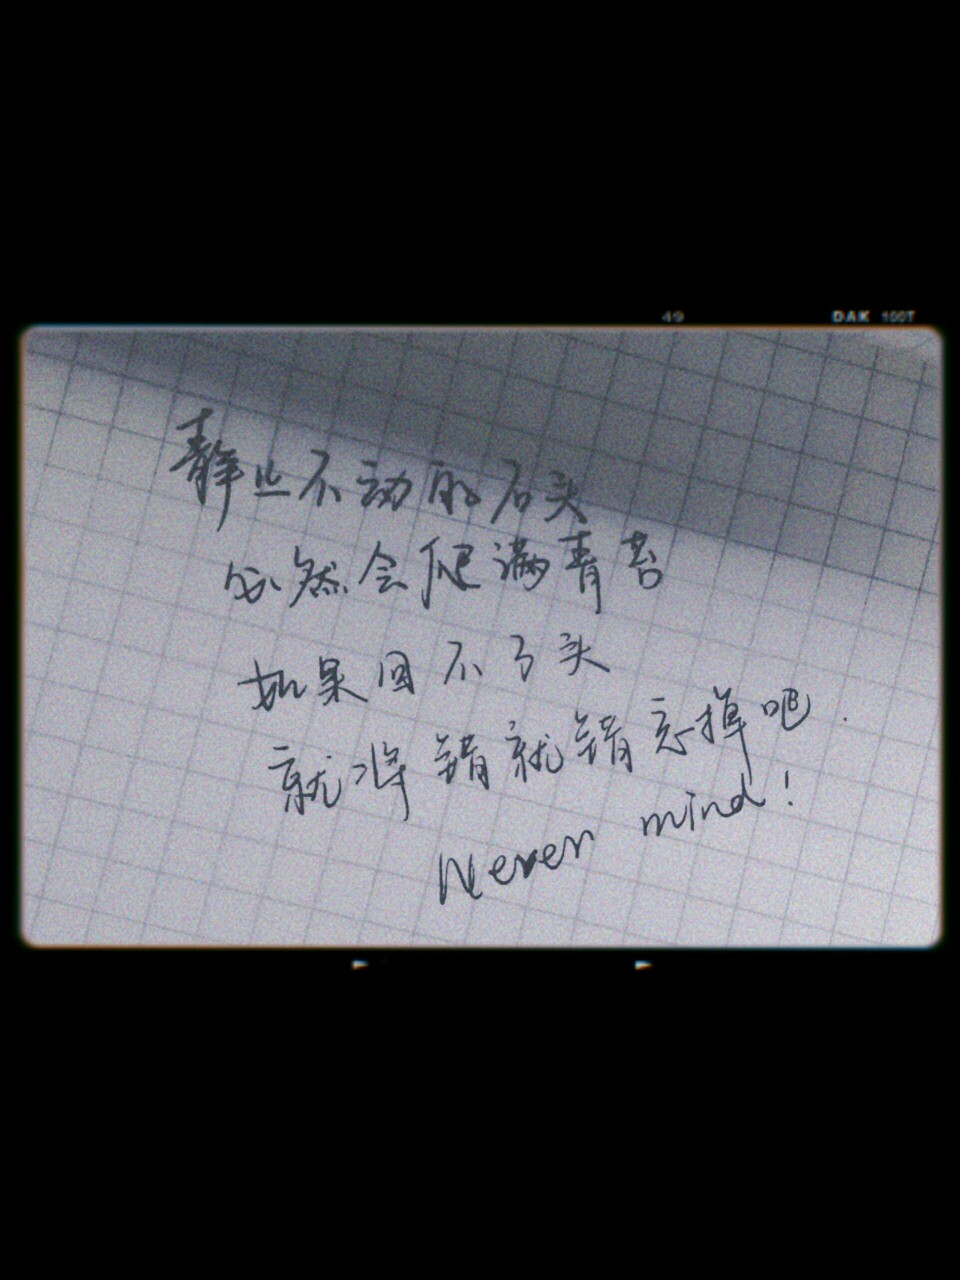 49 DAK 100T
静止不动的石头
必然会爬满青苔
如果回不了头
就将错就错忘掉吧.
Never mind!